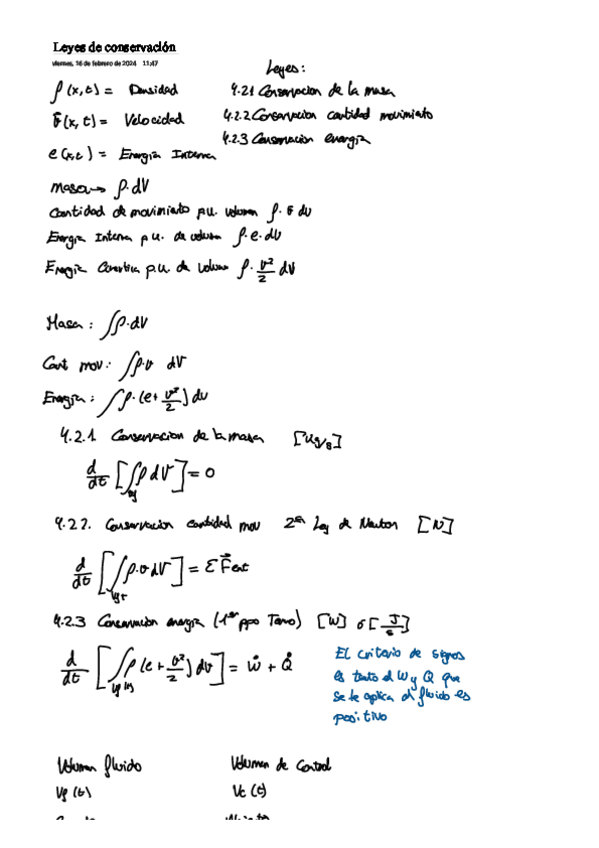 Leyes de conservación
viernes, 16 de febrero de 2024 11:47
Leyes:
ρ(x,t) = Densidad
4.2.1 Conservacion de la masa
v̄(x,t) = Velocidad
4.2.2 Conservacion cantidad movimiento
4.2.3 Conservacion energia
e(x,t) = Energia Interna
masa → ρ·dV
Cantidad de movimiento p.u. volumen ρ·v̄ dv
Energia Interna p.u. de volumen ρ·e·dV
Energia Cinetica p.u. de volumen ρ·v²/2 dV
Masa: ∫ρ·dV
Cant mov: ∫ρ·v dV
Energia: ∫ρ·(e+v²/2) dv
4.2.1 Conservacion de la masa [kg/s]
d/dt [∫ρ dV] = 0
4.2.2. Conservacion cantidad mov 2ª Ley de Newton [N]
d/dt [∫ρ·v dV] = Σ F⃗ext
4.2.3 Conservacion energia (1er ppo Termo) [W] ó [J/s]
d/dt [∫ρ(e+v²/2) dv] = Ẇ + Q̇
El criterio de signos
es tanto el W y Q que
se le aplica al fluido es
positivo
Volumen fluido Volumen de Control
Vf (t) Vc (t)